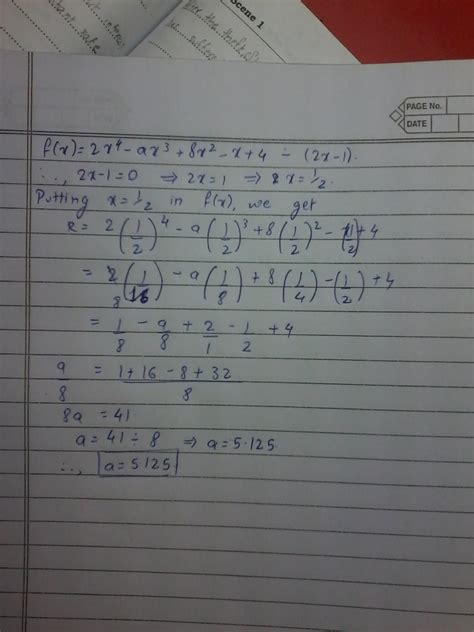 Scene 1
PAGE No.
DATE
f(x)=2x⁴-ax³+8x²-x+4 ÷ (2x-1).
∴, 2x-1=0 ⇒ 2x=1 ⇒ x=1/2.
Putting x=1/2 in f(x), we get
R= 2(1/2)⁴-a(1/2)³+8(1/2)²-(1/2)+4
= 2(1/16)-a(1/8)+8(1/4)-(1/2)+4
= 1/8-a/8+2/1-1/2+4
a/8 = 1+16-8+32/8
8a = 41
a = 41÷8 ⇒ a=5.125
∴, a=5.125